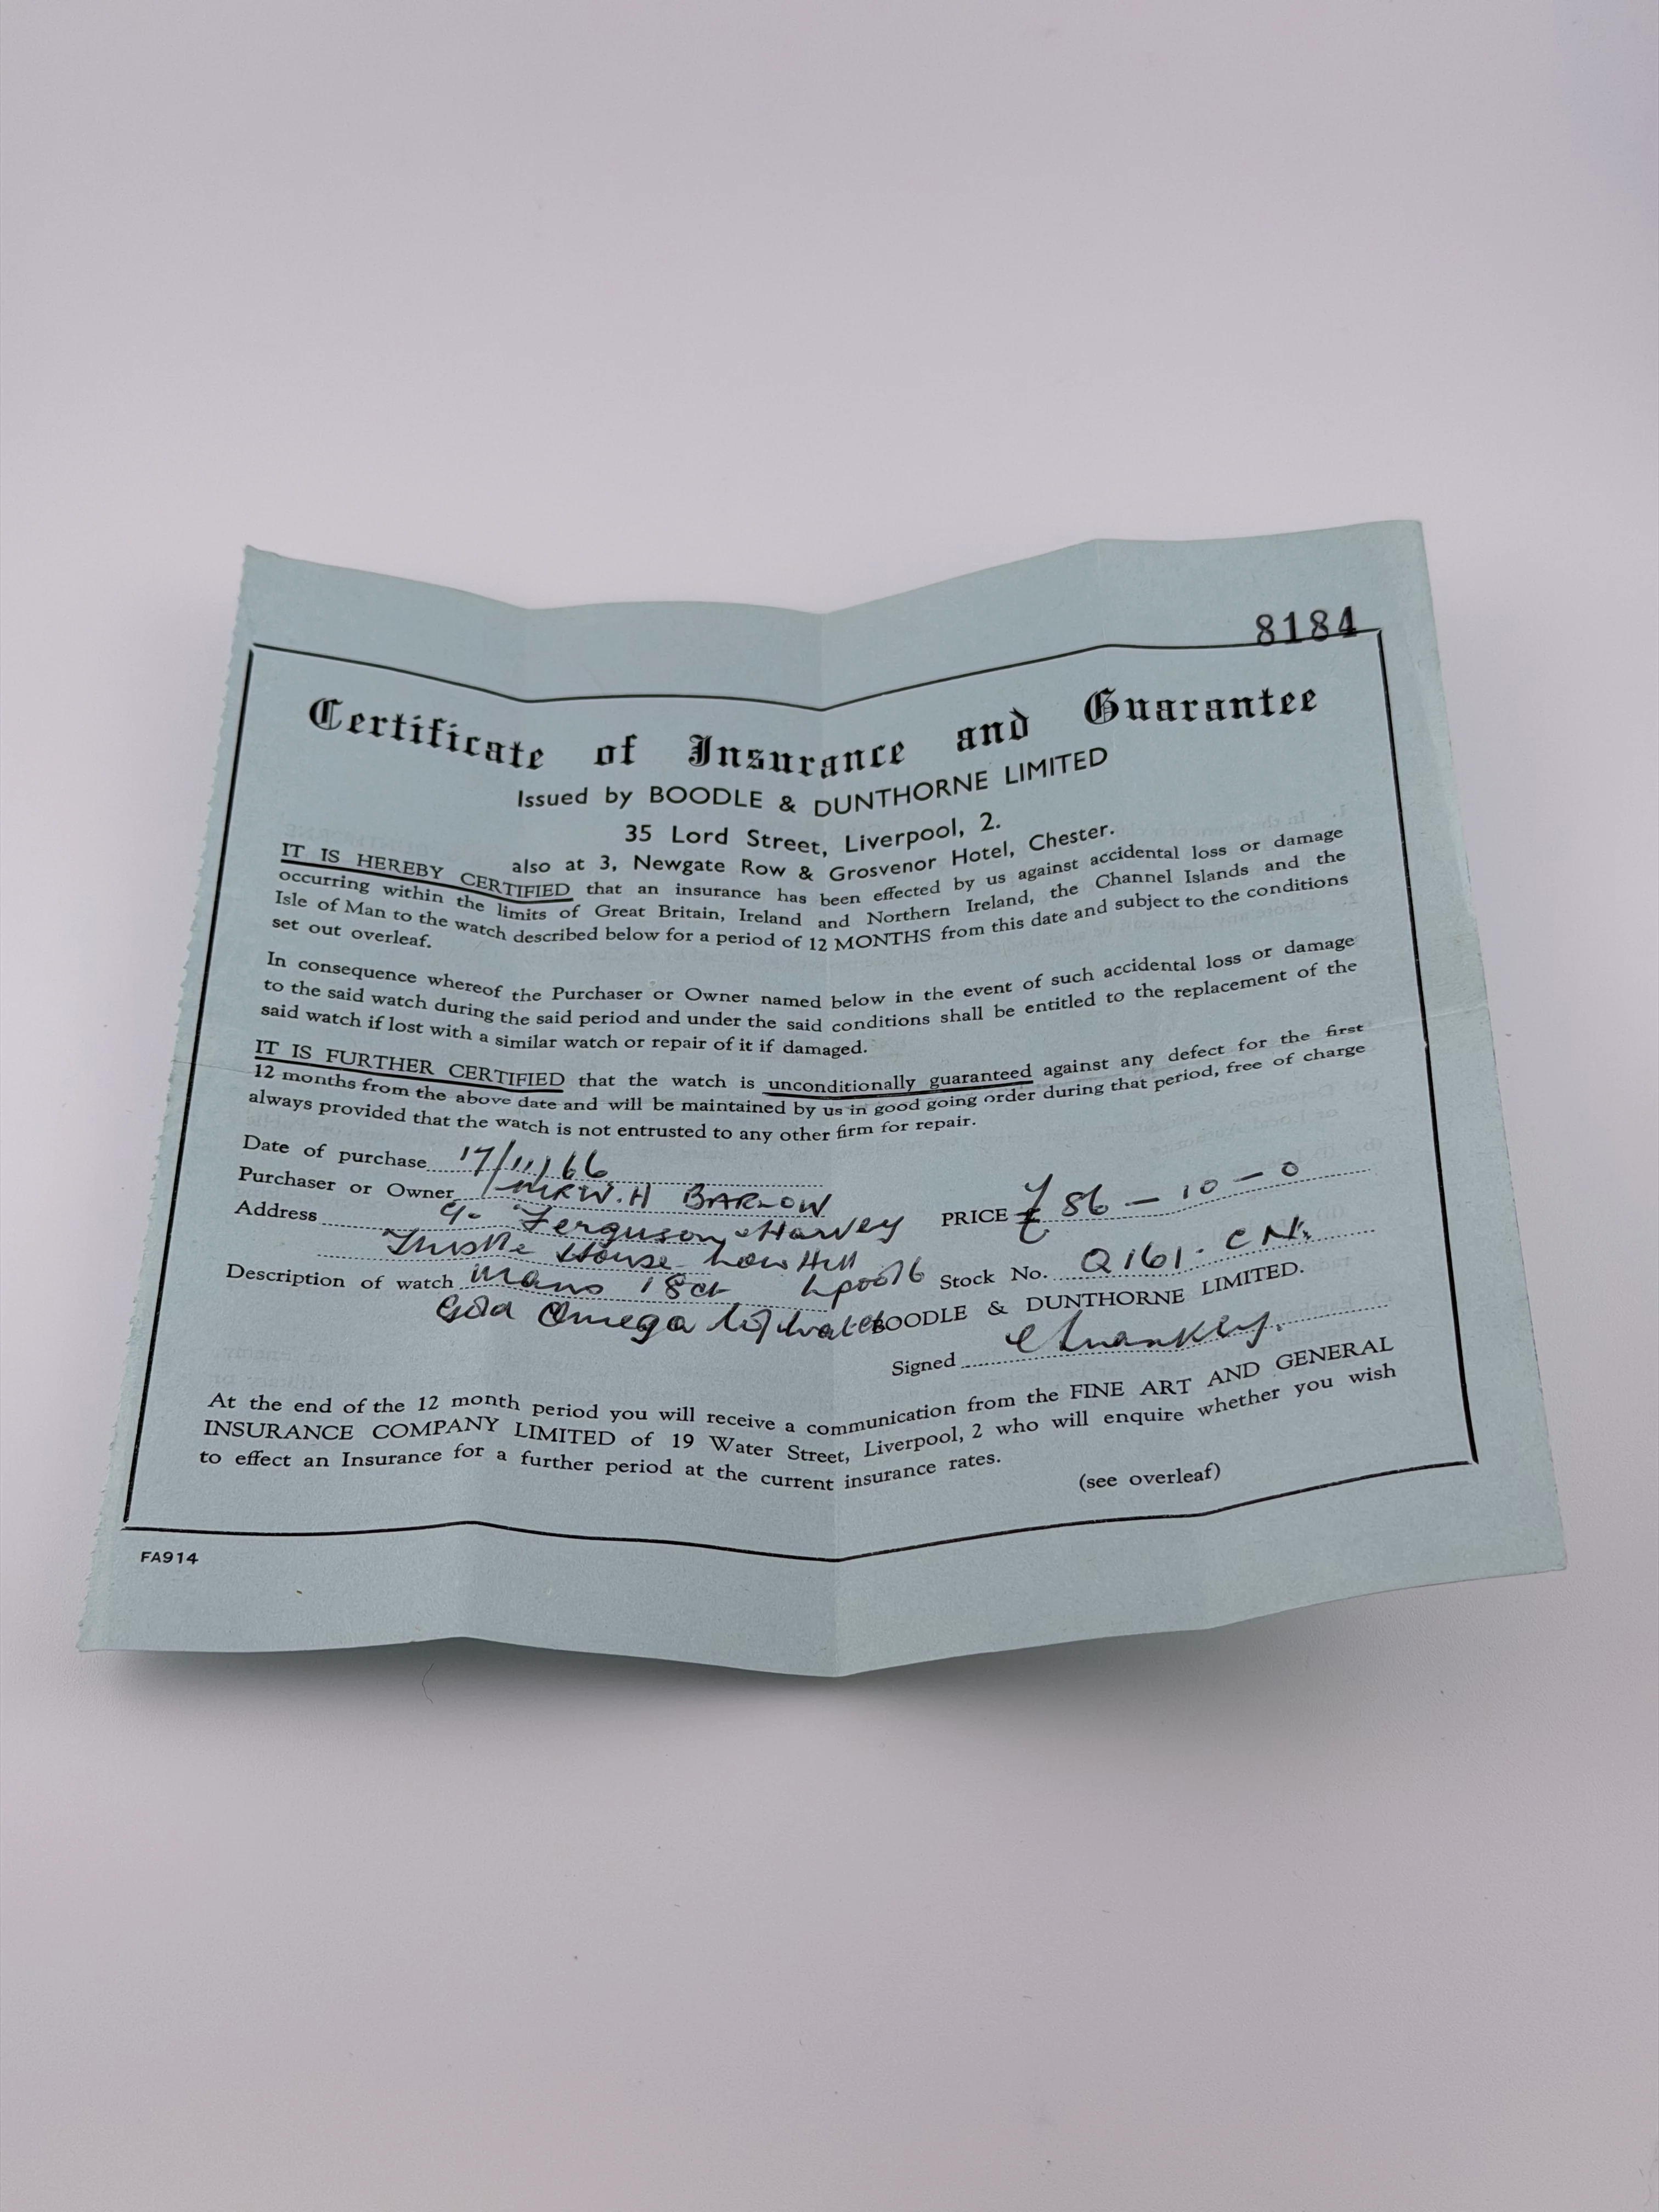 8184
Certificate of Insurance and Guarantee
Issued by BOODLE & DUNTHORNE LIMITED
35 Lord Street, Liverpool, 2.
also at 3, Newgate Row & Grosvenor Hotel, Chester.
IT IS HEREBY CERTIFIED that an insurance has been effected by us against accidental loss or damage
occurring within the limits of Great Britain, Ireland and Northern Ireland, the Channel Islands and the
Isle of Man to the watch described below for a period of 12 MONTHS from this date and subject to the conditions
set out overleaf.
In consequence whereof the Purchaser or Owner named below in the event of such accidental loss or damage
to the said watch during the said period and under the said conditions shall be entitled to the replacement of the
said watch if lost with a similar watch or repair of it if damaged.
IT IS FURTHER CERTIFIED that the watch is unconditionally guaranteed against any defect for the first
12 months from the above date and will be maintained by us in good going order during that period, free of charge
always provided that the watch is not entrusted to any other firm for repair.
Date of purchase 17/11/66
Purchaser or Owner MR W. H BARLOW
PRICE £ 86 - 10 - 0
Address c/o Ferguson Harvey
Thistle House Low Hill
L'pool 6
Stock No. Q161. CN.
Description of watch Mans 18ct
Gold Omega
BOODLE & DUNTHORNE LIMITED.
Signed
At the end of the 12 month period you will receive a communication from the FINE ART AND GENERAL
INSURANCE COMPANY LIMITED of 19 Water Street, Liverpool, 2 who will enquire whether you wish
to effect an Insurance for a further period at the current insurance rates.
(see overleaf)
FA914